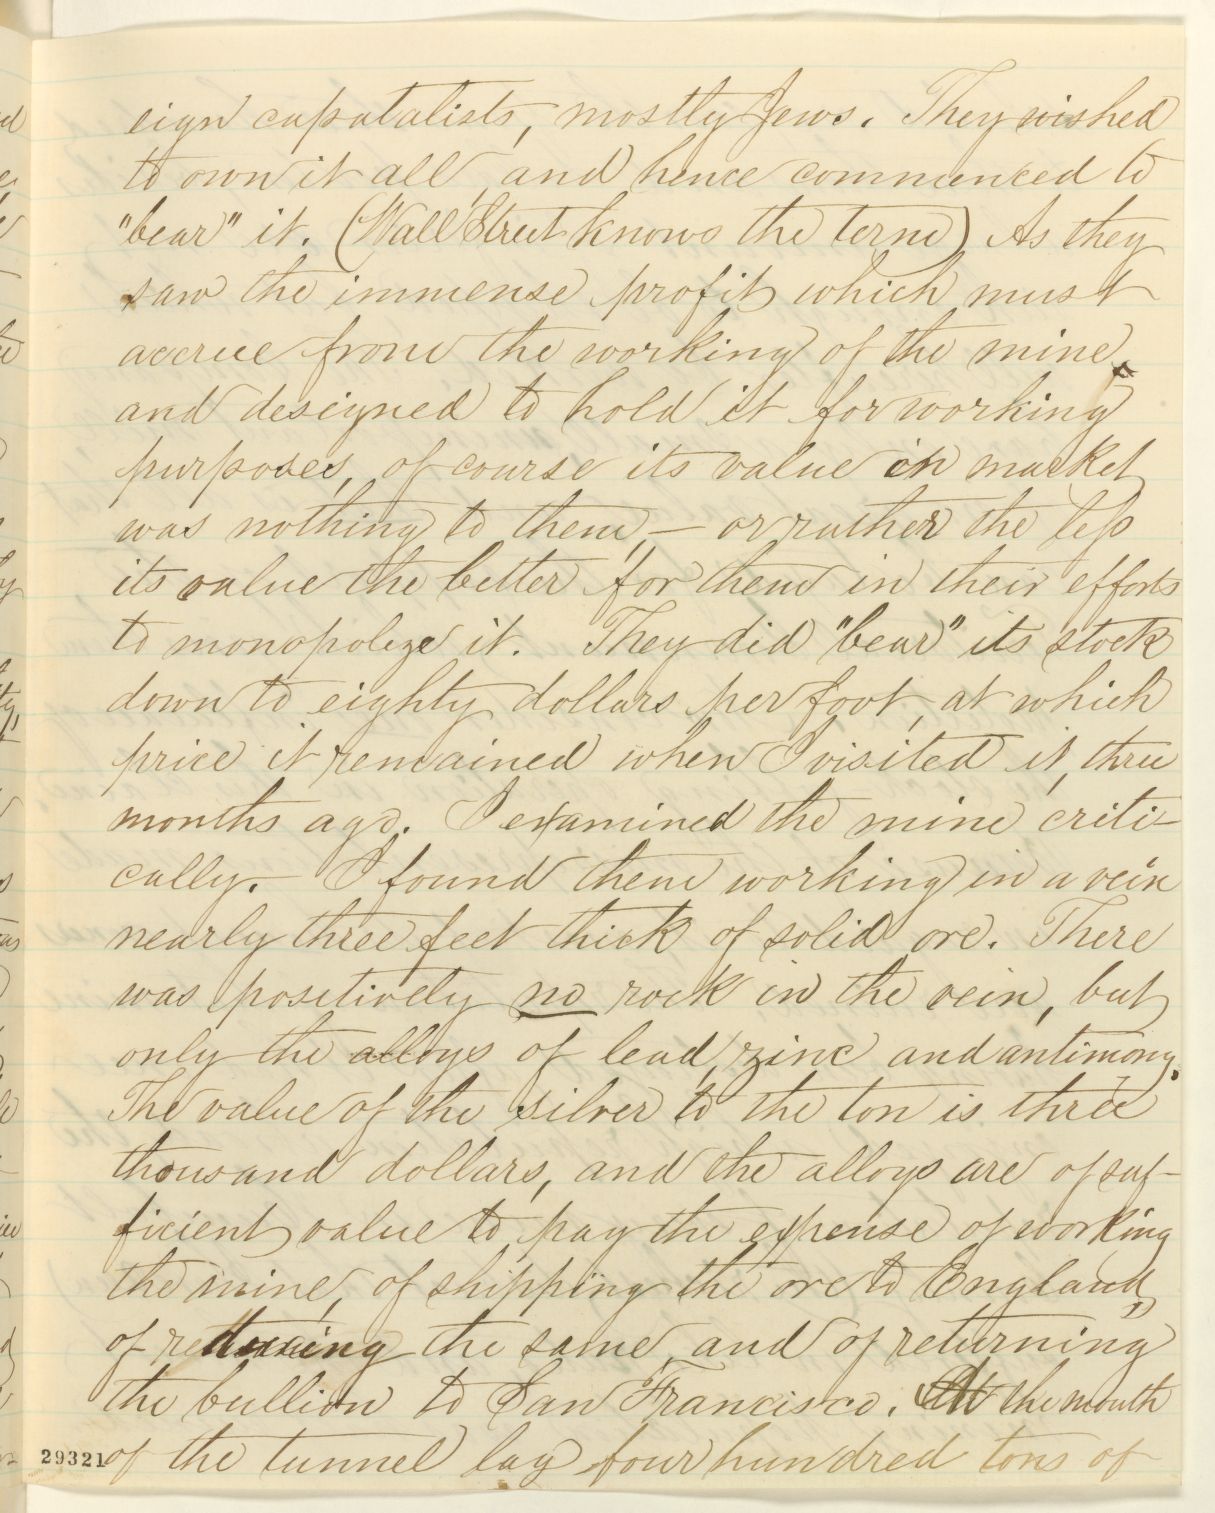 eign capatalists, mostly Jews. They wished
to own it all, and hence commenced to
"bear" it. (Wall Street knows the term) As they
saw the immense profits which must
accrue from the working of the mine,
and designed to hold it for working
purposes, of course its value in market
was nothing to them, – or rather the less
its value the better for them in their efforts
to monopolize it. They did "bear" its stock
down to eighty dollars per foot, at which
price it remained when I visited it, three
months ago. I examined the mine criti-
cally. I found them working in a vein
nearly three feet thick of solid ore. There
was positively no rock in the vein, but
only the alloys of lead, zinc and antimony.
The value of the silver to the ton is three
thousand dollars, and the alloys are of suf-
ficient value to pay the expense of working
the mine, of shipping the ore to England,
of reducing the same, and of returning
the bullion to San Francisco. At the mouth
of the tunnel lay four hundred tons of
29321